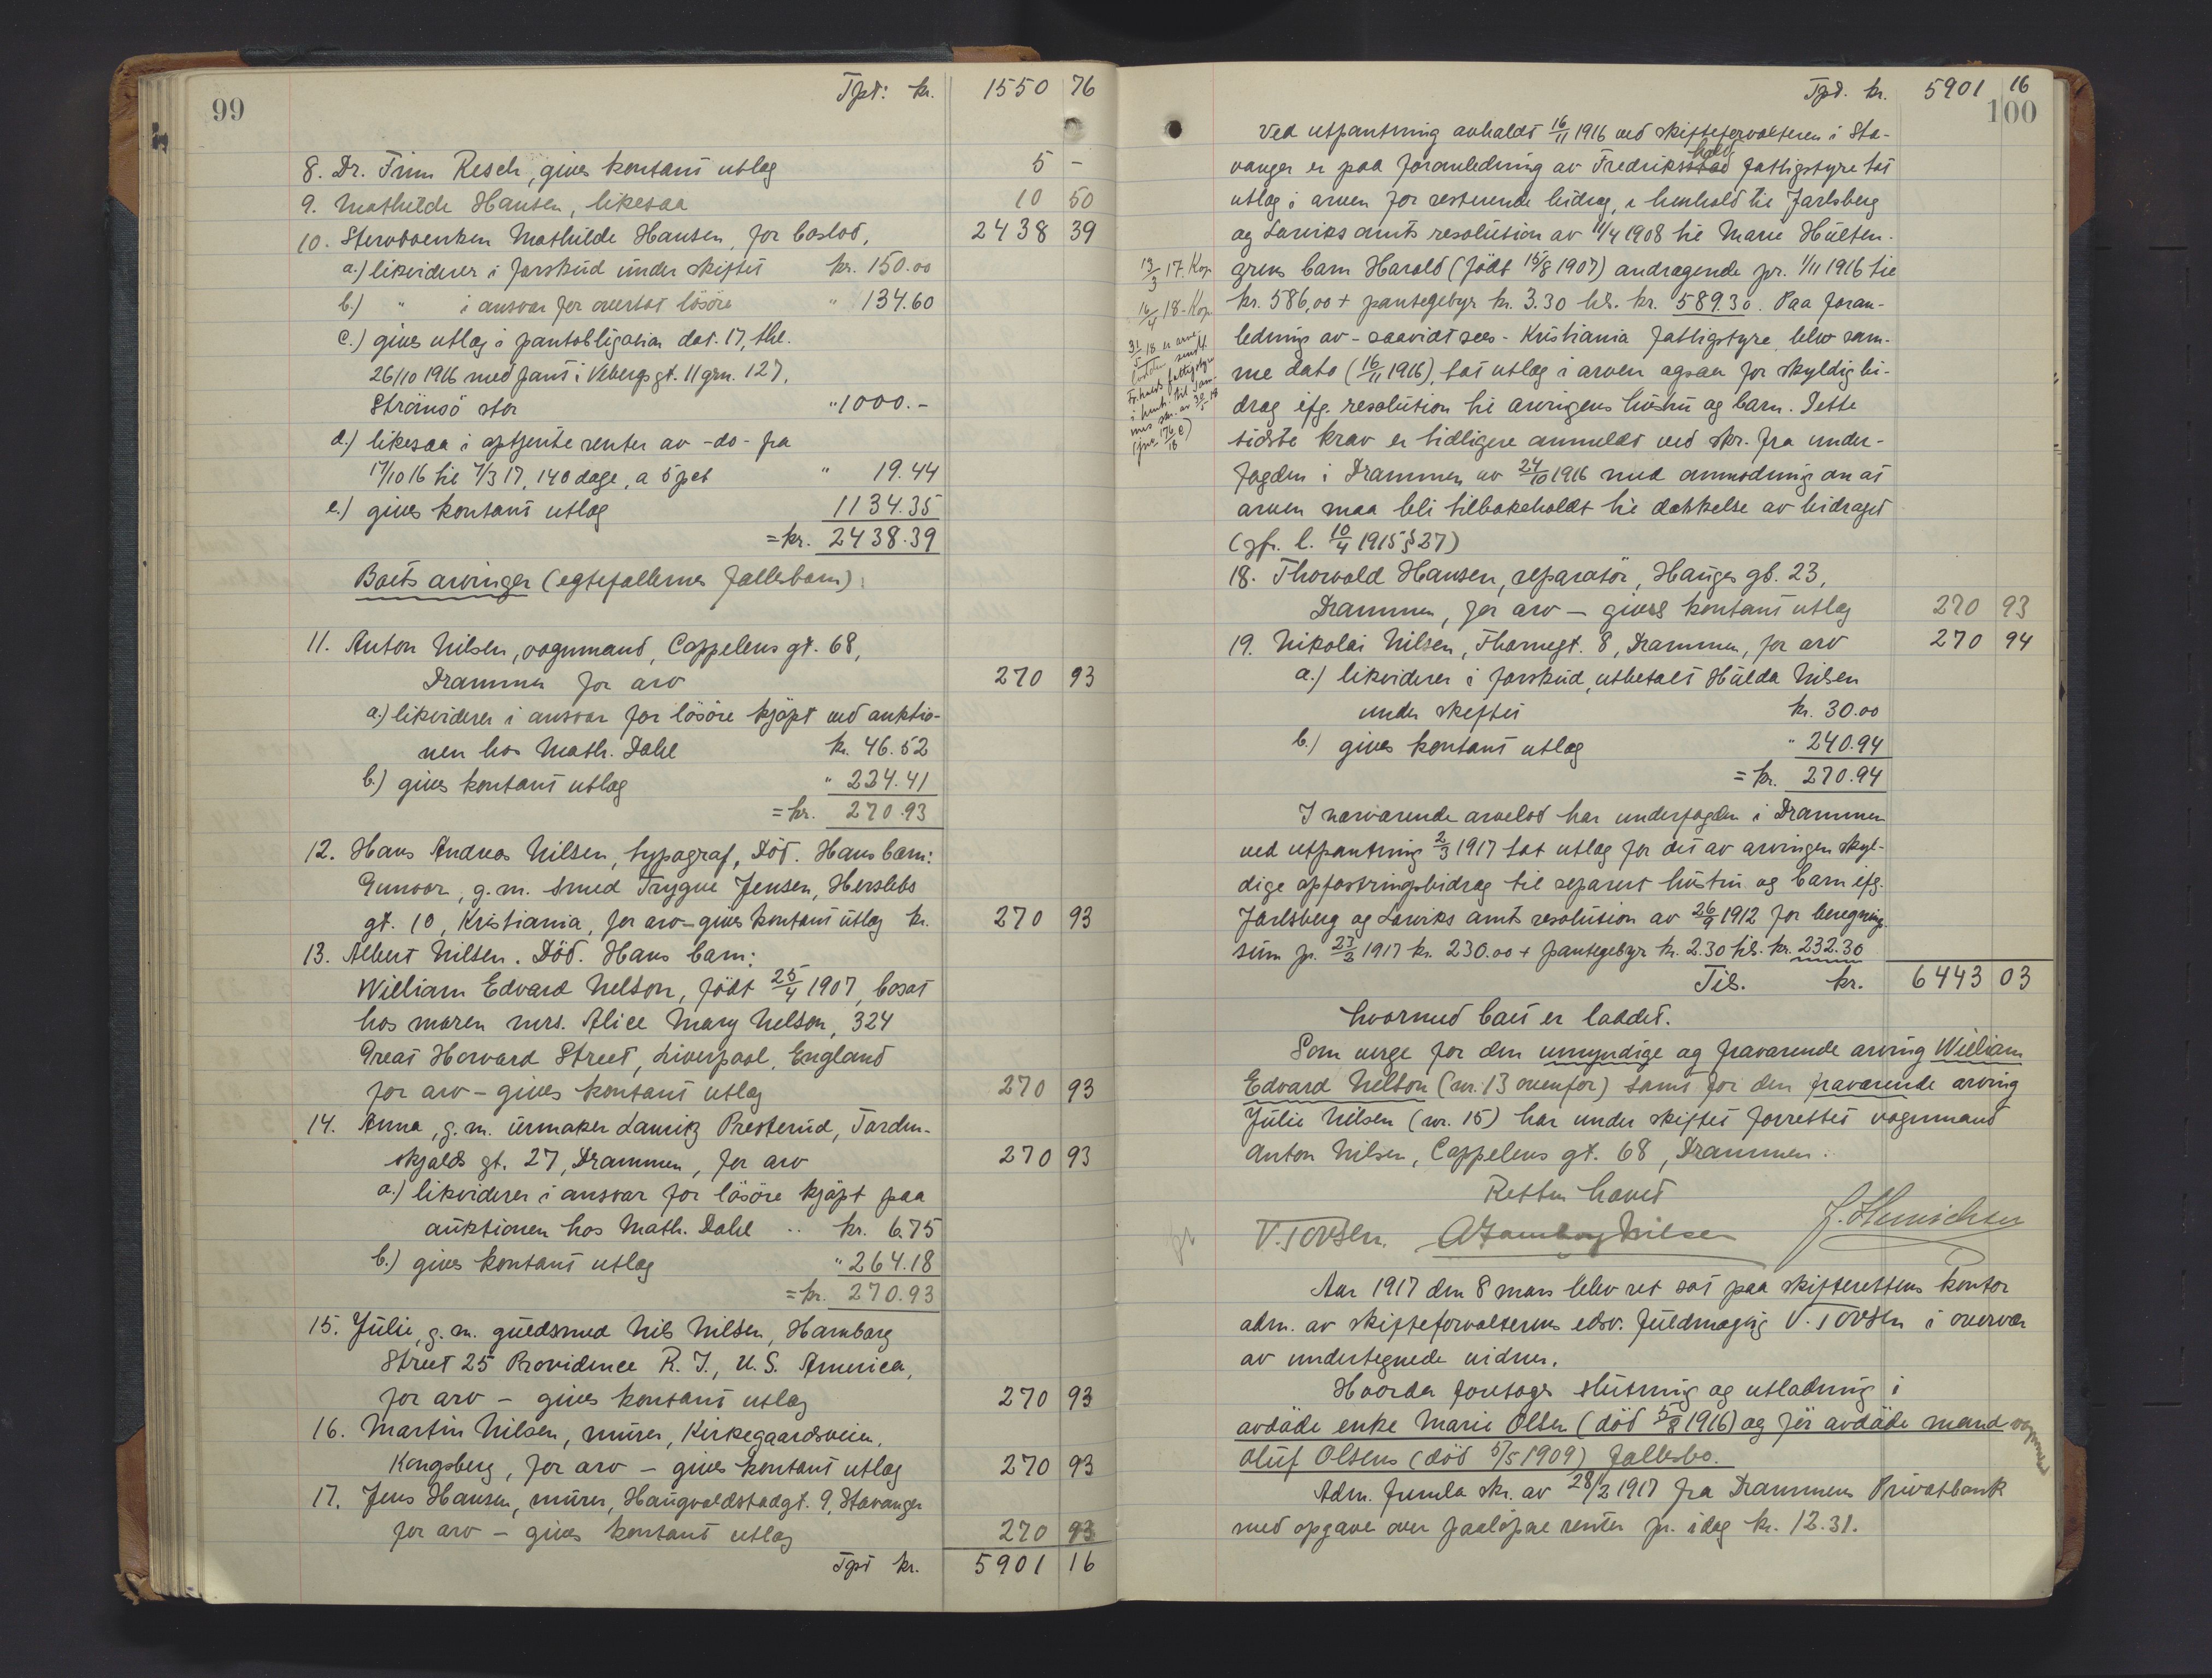 99
Tpt: kr. 1550 76
8. Dr. Finn Resch, gives kontant utlæg 5 -
9. Mathilde Hansen, likesaa 10 50
10. Stervboenken Mathilde Hansen, for boslod, 2438 39
a.) likviderer i forskud under skiftet kr. 150.00
b.) " i ansvar for overtat løsøre " 134.60
c.) gives utlæg i pantobligation dat. 17, thl.
26/10 1916 med pant i Vebergs gt. 11 grn. 127,
Strømsø stor " 1000.-
d.) likesaa i optjente renter av -do- fra
17/10 16 til 7/3 17, 140 dage, a 5 pct " 19.44
e.) gives kontant utlæg 1134.35
= kr. 2438.39
Boets arvinger (egtefællernes fællesbarn):
11. Anton Nilsen, vognmand, Cappelens gt. 68,
Drammen for arv 270 93
a.) likviderer i ansvar for løsøre kjøpt ved auktio-
nen hos Math. Dahl kr. 46.52
b.) gives kontant utlæg " 224.41
= kr. 270.93
12. Hans Andreas Nilsen, typograf, Død. Hans barn:
Gunvor, g.m. smed Trygve Jensen, Herslebs
gt. 10, Kristiania, for arv - gives kontant utlæg kr. 270 93
13. Albert Nilsen. Død. Hans barn:
William Edvard Nelson, født 25/4 1907, bosat
hos moren mrs. Alice Mary Nelson, 324
Great Howard Street, Liverpool, England
for arv - gives kontant utlæg 270 93
14. Anna, g.m. urmaker Lauritz Presterud, Torden-
skjolds gt. 27, Drammen, for arv 270 93
a.) likviderer i ansvar for løsøre kjøpt paa
auktionen hos Math. Dahl .. kr. 6.75
b.) gives kontant utlæg " 264.18
= kr. 270.93
15. Julie, g.m. guldsmed Nils Nilsen, Hamburg
Street 25 Providence R. I., U.S. America,
for arv - gives kontant utlæg 270 93
16. Martin Nilsen, murer, Kirkegaardsveien,
Kongsberg, for arv - gives kontant utlæg 270 93
17. Jens Hansen, murer, Haugvaldstadgt. 9, Stavanger
for arv - gives kontant utlæg 270 93
Tpt kr. 5901 16
Tpt. kr. 5901 16
100
Ved utpantning avholdt 16/11 1916 ved skifteforvalteren i Sta-
vanger er paa foranledning av Fredriksstad hald fattigstyre tat
utlæg i arven for resterende bidrag, i henhold til Jarlsberg
og Larviks amts resolution av 11/4 1908 til Marie Hülten-
grens barn Harald (født 15/8 1907) andragende pr. 1/11 1916 til
kr. 586,00 + pantegebyr kr. 3.30 tils. kr. 589.30. Paa foran-
ledning av - saavidt sees - Kristiania fattigstyre blev sam-
me dato (16/11 1916), tat utlæg i arven ogsaa for skyldig bi-
drag ifg. resolution til arvingens hustru og barn. Dette
sidste krav er tidligere anmeldt ved skr. fra under-
fogden i Drammen av 24/10 1916 med anmodning om at
arven maa bli tilbakeholdt til dækkelse av bidraget
(jfr. l. 10/4 1915 § 27)
13/3 17. Kop
16/4 18. Kop.
31/5 18 er arve
lodden sendt
Fr.halds fattigstyre
i henh. til sam-
mes skr. av 30/5 18
18. Thorvald Hansen, reparatør, Hauges gt. 23,
Drammen, for arv - gives kontant utlæg 270 93
19. Nikolai Nilsen, Thornegt. 8, Drammen, for arv 270 94
a.) likviderer i forskud, utbetalt Hulda Nilsen
under skiftet kr. 30.00
b.) gives kontant utlæg " 240.94
= kr. 270.94
I nærværende arvelod har underfogden i Drammen
ved utpantning 2/3 1917 tat utlæg for det av arvingen skyl-
dige opfostringsbidrag til separert hustru og barn ifg.
Jarlsberg og Larviks amts resolution av 26/9 1912 for beregnings
sum pr. 23/2 1917 kr. 230.00 + pantegebyr kr. 2.30 tils. kr. 232.30
Tils. kr. 6443 03
hvormed boet er laddet.
Som verge for den umyndige og fraværende arving William
Edvard Nelson (nr. 13 ovenfor) samt for den fraværende arving
Julie Nilsen (nr. 15) har under skiftet forrettet vognmand
Anton Nilsen, Cappelens gt. 68, Drammen.
Retten hævet
V. Tovsen.
Aar 1917 den 8 mars blev ret sat paa skifterettens kontor
adm. av skifteforvalterens edsv. fuldmægtig V. Tovsen i overvær
av undertegnede vidner.
Hvorda foretoges slutning og utlodning i
avdøde enke Marie Olsen (død 5/8 1916) og før avdøde mand vognmand
Oluf Olsens (død 5/5 1909) fællesbo.
Adm. fremla skr. av 28/2 1917 fra Drammens Privatbank
med opgave over paaløpne renter pr. idag kr. 12.31.